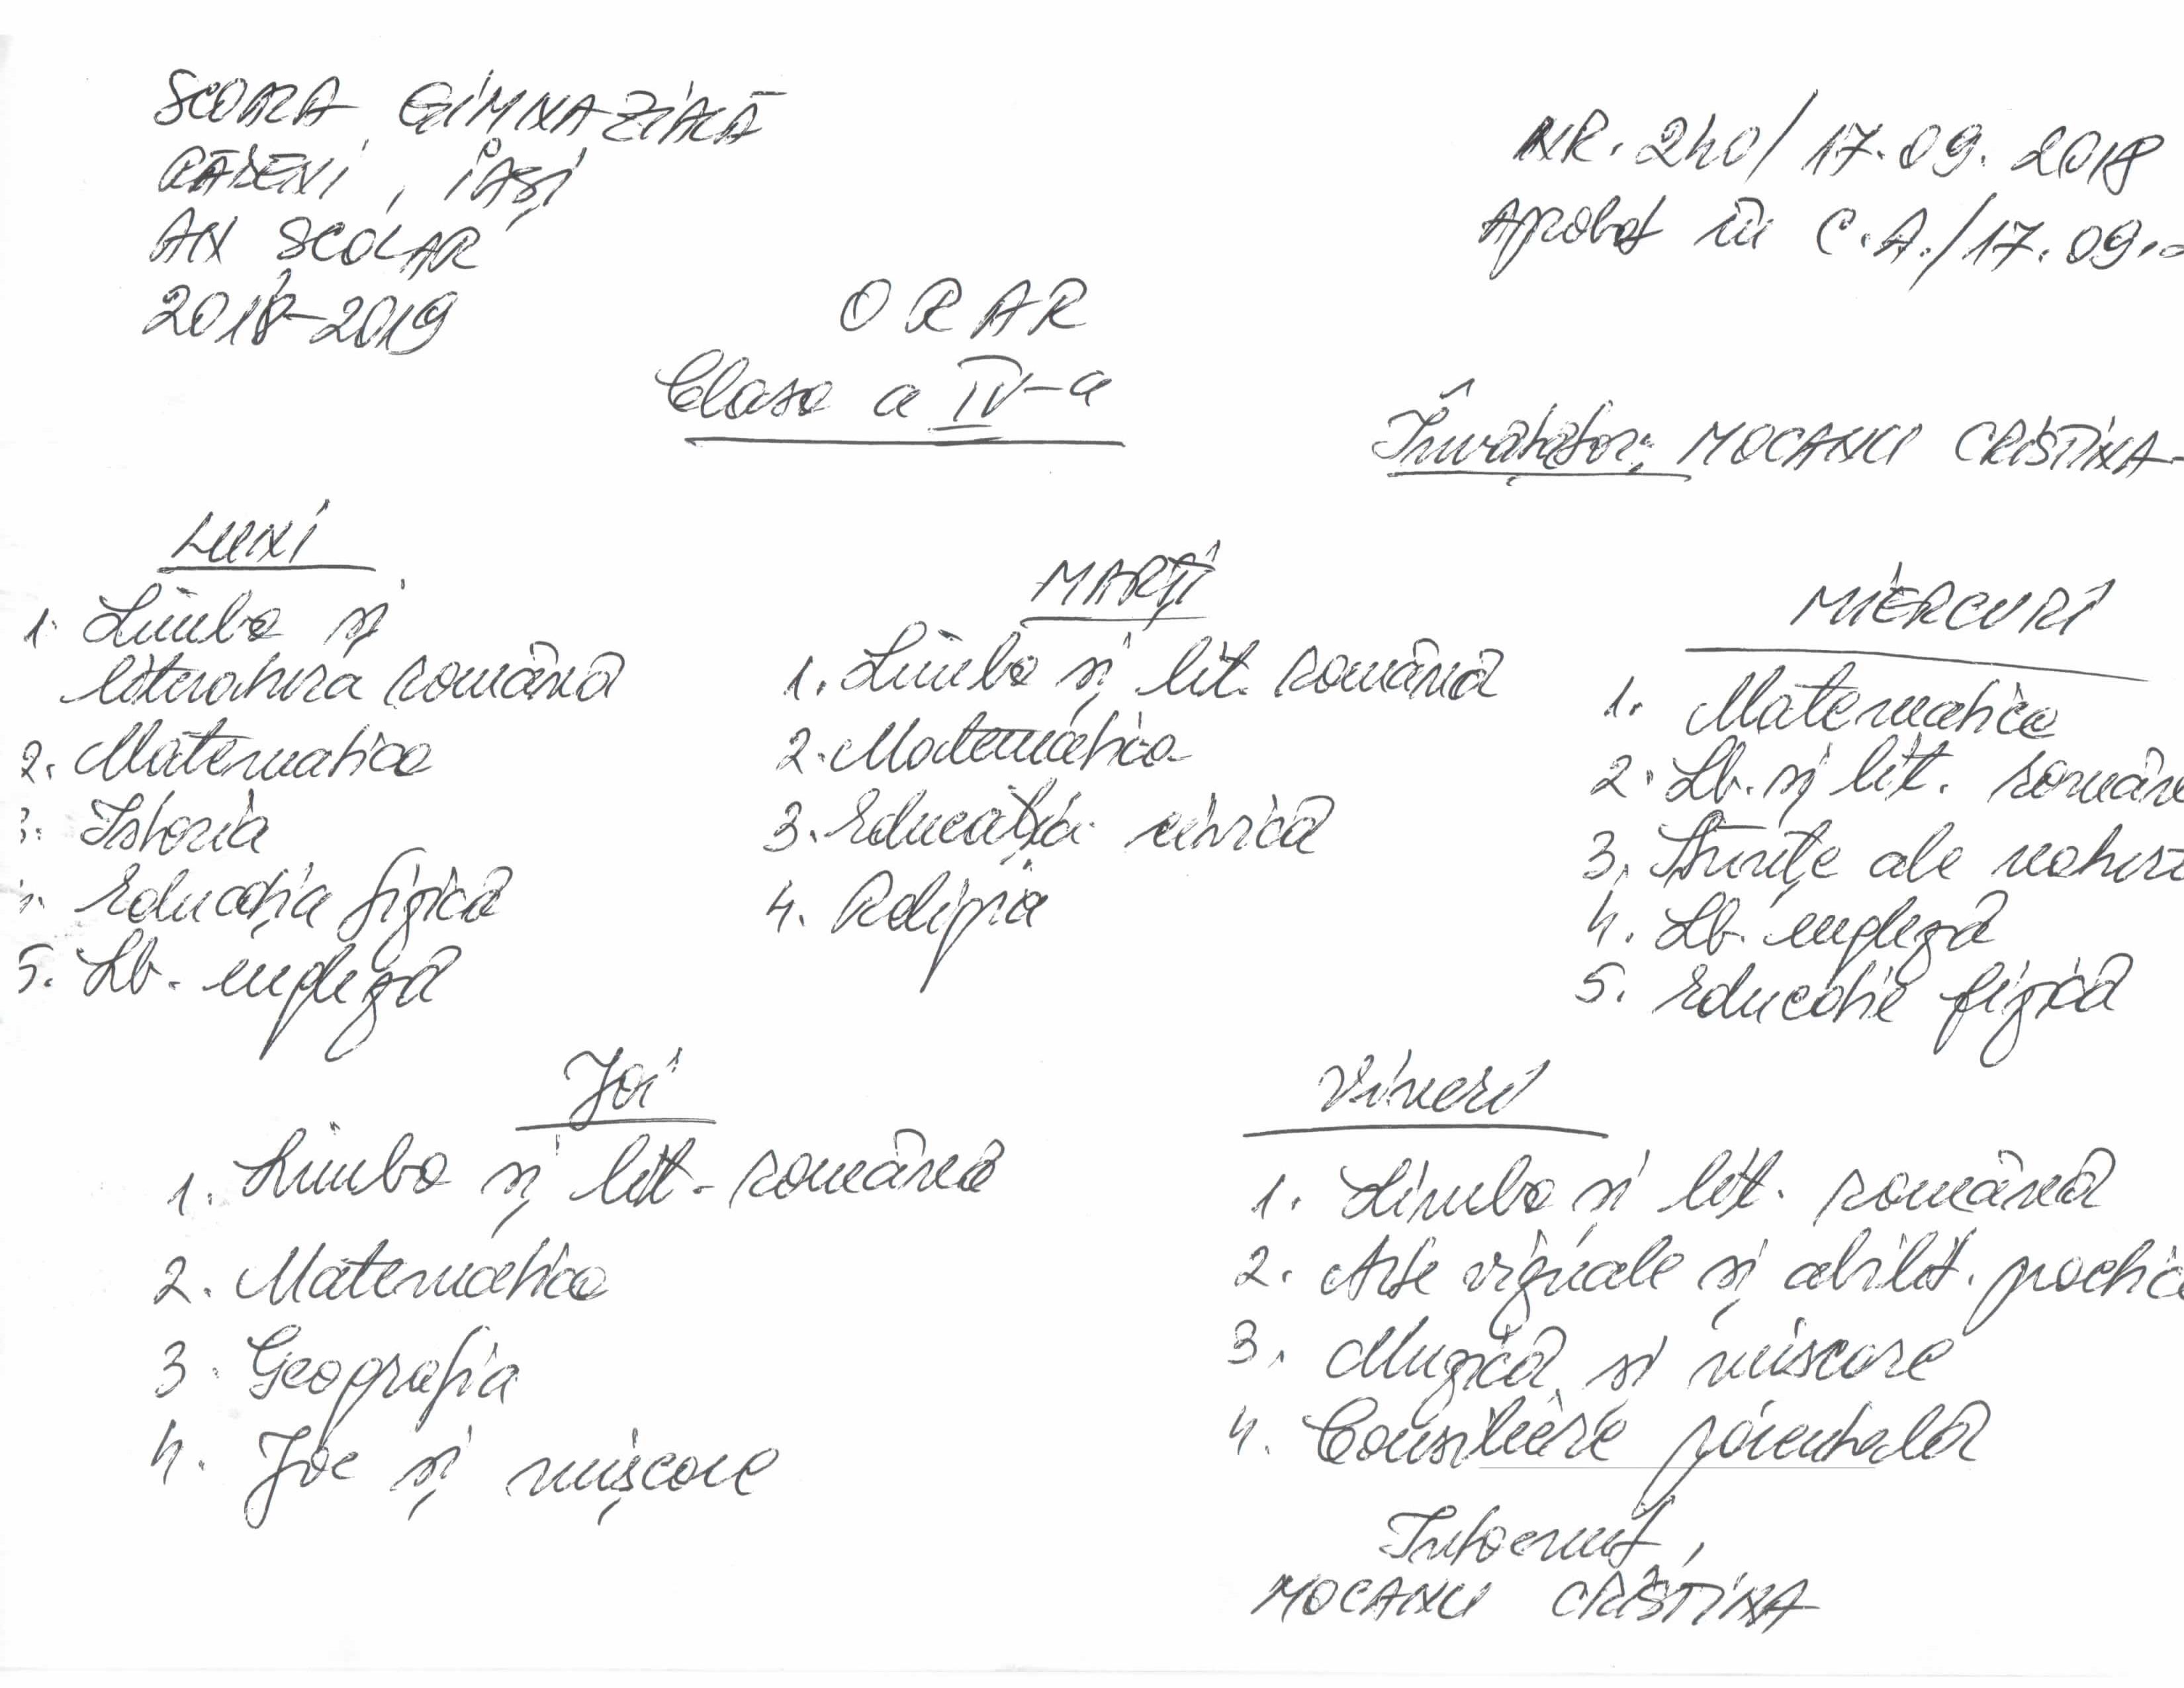 ȘCOALA GIMNAZIALĂ
, IAȘI
AN ȘCOLAR
2018-2019
NR. 240/17.09.2018
Aprobat în C.A./17.09.
ORAR
Clasa a IV-a
Învățător: MOCANU CRISTINA
LUNI
1. Limba și
literatura română
2. Matematica
3. Istoria
4. Educația fizică
5. Lb. engleză
MARȚI
1. Limba și lit. română
2. Matematica
3. Educația civică
4. Religia
MIERCURI
1. Matematica
2. Lb. și lit. român
3. Științe ale natur
4. Lb. engleză
5. Educație fizică
Joi
1. Limba și lit. română
2. Matematica
3. Geografia
4. Joc și mișcare
Vineri
1. Limba și lit. română
2. Arte vizuale și abilit. practice
3. Muzică și miscare
4. Consiliere parentală
Întocmit,
MOCANU CRISTINA